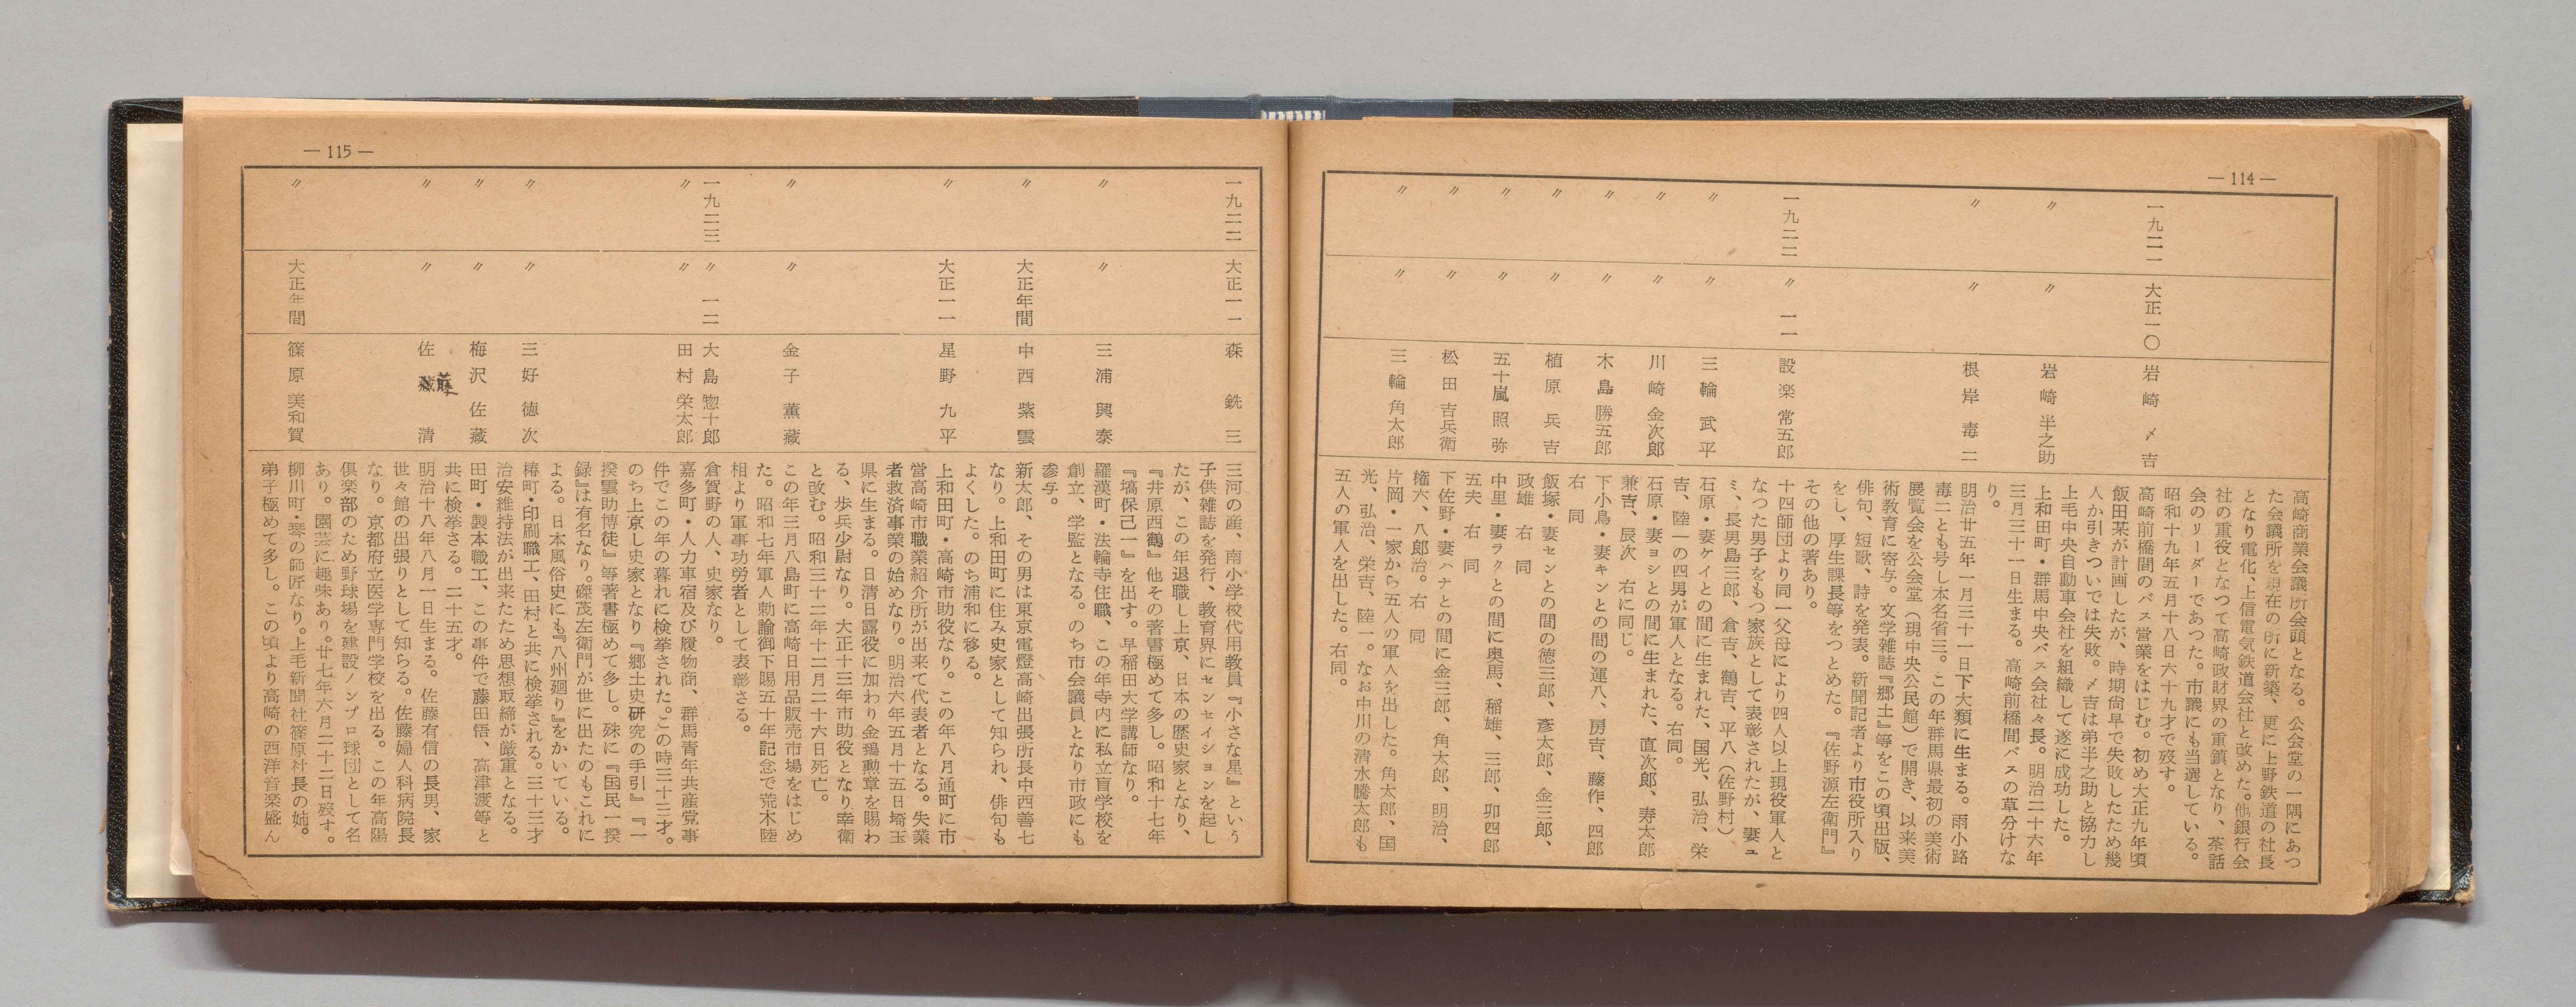 — 114 —
高崎商業会議所会頭となる。公会堂の一隅にあつ
た会議所を現在の所に新築、更に上野鉄道の社長
となり電化、上信電気鉄道会社と改めた。他銀行会
社の重役となつて高崎政財界の重鎮となり、茶話
会のリーダーであつた。市議にも当選している。
昭和十九年五月十八日六十九才で歿す。
一九二一 大正一〇 岩崎〆吉 高崎前橋間のバス営業をはじむ。初め大正九年頃
飯田某が計画したが、時期尚早で失敗したため幾
人か引きついでは失敗。〆吉は弟半之助と協力し
上毛中央自動車会社を組織して遂に成功した。
〃 〃 岩崎半之助 上和田町・群馬中央バス会社々長。明治二十六年
三月三十一日生まる。高崎前橋間バスの草分けな
り。
〃 〃 根岸毒二 明治廿五年一月三十一日下大類に生まる。雨小路
毒二とも号し本名省三。この年群馬県最初の美術
展覧会を公会堂（現中央公民館）で開き、以来美
術教育に寄与。文学雑誌『郷土』等をこの頃出版、
俳句、短歌、詩を発表。新聞記者より市役所入り
をし、厚生課長等をつとめた。『佐野源左衛門』
その他の著あり。
一九二二 〃一一 設楽常五郎 十四師団より同一父母により四人以上現役軍人と
なつた男子をもつ家族として表彰されたが、妻ユ
ミ、長男島三郎、倉吉、鶴吉、平八（佐野村）
〃 〃 三輪武平 石原・妻ケイとの間に生まれた、国光、弘治、栄
吉、陸一の四男が軍人となる。右同。
〃 〃 川崎金次郎 石原・妻ヨシとの間に生まれた、直次郎、寿太郎
兼吉、辰次 右に同じ。
〃 〃 木島勝五郎 下小鳥・妻キンとの間の運八、房吉、藤作、四郎
右 同
〃 〃 植原兵吉 飯塚・妻センとの間の徳三郎、彦太郎、金三郎、
政雄 右 同
〃 〃 五十嵐照弥 中里・妻ラクとの間に奥馬、稲雄、三郎、卯四郎
五夫 右 同
〃 〃 松田吉兵衛 下佐野・妻ハナとの間に金三郎、角太郎、明治、
権六、八郎治。右 同
〃 〃 三輪角太郎 片岡・一家から五人の軍人を出した。角太郎、国
光、弘治、栄吉、陸一。なお中川の清水騰太郎も
五人の軍人を出した。右同。
— 115 —
一九二二 大正一一 森銑三 三河の産、南小学校代用教員『小さな星』という
子供雑誌を発行、教育界にセンセイションを起し
たが、この年退職し上京、日本の歴史家となり、
『井原西鶴』他その著書極めて多し。昭和十七年
『塙保己一』を出す。早稲田大学講師なり。
〃 〃 三浦興泰 羅漢町・法輪寺住職、この年寺内に私立盲学校を
創立、学監となる。のち市会議員となり市政にも
参与。
〃 大正年間 中西紫雲 新太郎、その男は東京電燈高崎出張所長中西善七
なり。上和田町に住み史家として知られ、俳句も
よくした。のち浦和に移る。
〃 大正一一 星野九平 上和田町・高崎市助役なり。この年八月通町に市
営高崎市職業紹介所が出来て代表者となる。失業
者救済事業の始めなり。明治六年五月十五日埼玉
県に生まる。日清日露役に加わり金鵄勲章を賜わ
る、歩兵少尉なり。大正十三年市助役となり幸衛
と改む。昭和三十二年十二月二十六日死亡。
〃 〃 金子薫蔵 この年三月八島町に高崎日用品販売市場をはじめ
た。昭和七年軍人勅諭御下賜五十年記念で荒木陸
相より軍事功労者として表彰さる。
一九二三 〃一二 大島惣十郎 倉賀野の人、史家なり。
〃 〃 田村栄太郎 嘉多町・人力車宿及び履物商、群馬青年共産党事
件でこの年の暮れに検挙された。この時三十三才。
のち上京し史家となり『郷土史研究の手引』『一
揆雲助博徒』等著書極めて多し。殊に『国民一揆
録』は有名なり。磔茂左衛門が世に出たのもこれに
よる。日本風俗史にも『八州廻り』をかいている。
〃 〃 三好徳次 椿町・印刷職工、田村と共に検挙される。三十三才
治安維持法が出来たため思想取締が厳重となる。
〃 〃 梅沢佐蔵 田町・製本職工、この事件で藤田悟、高津渡等と
共に検挙さる。二十五才。
〃 〃 佐藤清 明治十八年八月一日生まる。佐藤有信の長男、家
世々館の出張りとして知らる。佐藤婦人科病院長
なり。京都府立医学専門学校を出る。この年高陽
倶楽部のため野球場を建設ノンプロ球団として名
あり。園芸に趣味あり。廿七年六月二十二日歿す。
〃 大正年間 篠原美和賀 柳川町・琴の師匠なり。上毛新聞社篠原社長の姉。
弟子極めて多し。この頃より高崎の西洋音楽盛ん